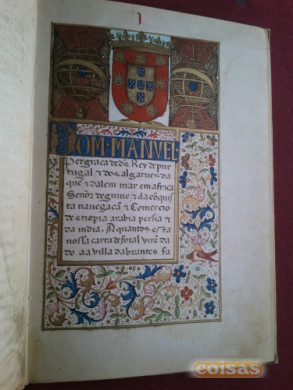 DOM·MANVEL
Per graca de ds Rey de pur
tugal ⁊ dos algarues da
que ⁊ dalem mar em africa
Señor de guine ⁊ da cõqui
sta navegacã ⁊ Comercio
de etiopia arabia persia ⁊
da india. A quantos esta
nossa carta de foral virẽ da
do aa villa dabrantes fa
coisas